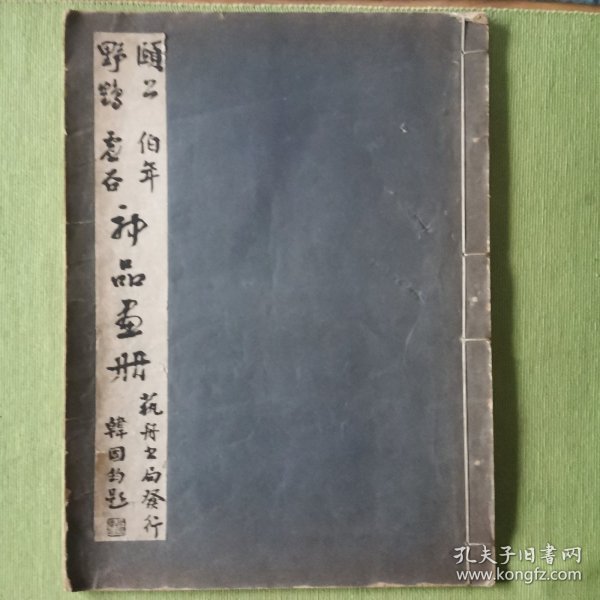 頤公 伯年
野鶴 虛谷
神品畫冊
藝舟書局發行
韓國鈞題
孔夫子旧書网
www.kongfz.com